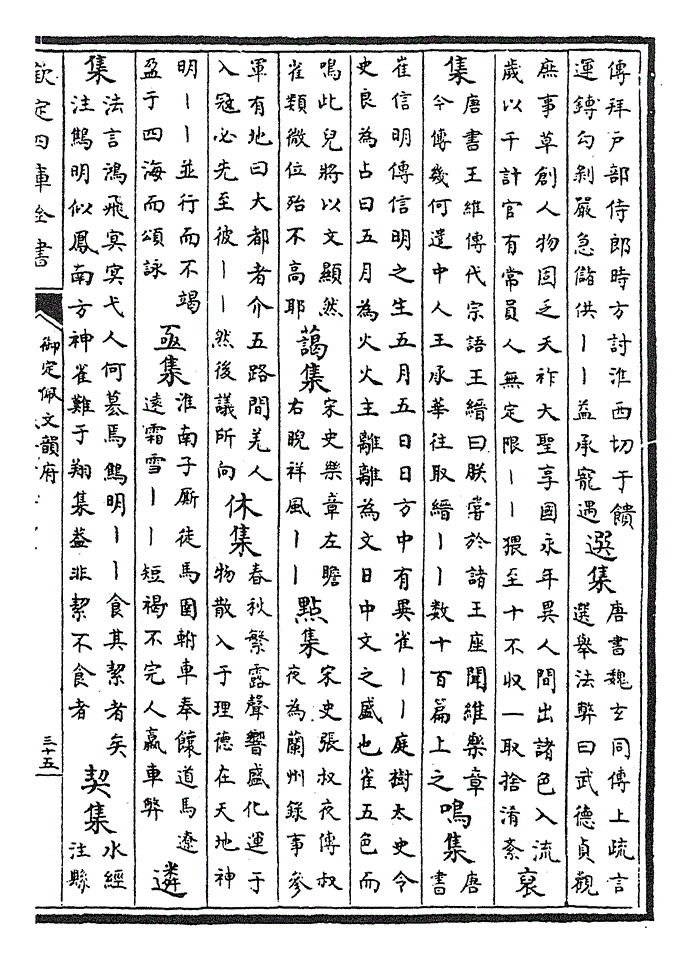 傳拜户部侍郎時方討淮西切于饋
運鏄勾剝嚴急儲供丨丨益承寵遇
選集
唐書魏玄同傳上疏言
選舉法弊曰武德貞觀
庶事草創人物固乏天祚大聖享國永年異人間出諸色入流
歲以千計官有常員人無定限丨丨猥至十不収一取捨淆紊
裒
集
唐書王維傳代宗語王縉曰朕嘗於諸王座聞維樂章
今傳幾何遣中人王承華往取縉丨丨數十百篇上之
鳴集
唐
書
崔信明傳信明之生五月五日日方中有異雀丨丨庭樹太史令
史良為占曰五月為火火主離離為文日中文之盛也雀五色而
鳴此兒將以文顯然
雀類微位殆不高耶
藹集
宋史樂章左瞻
右睨祥風丨丨
㸃集
宋史張叔夜傳叔
夜為蘭州錄事參
軍有地曰大都者介五路間羌人
入冦必先至彼丨丨然後議所向
休集
春秋繁露聲響盛化運于
物散入于理德在天地神
明丨丨並行而不竭
盈于四海而頌詠
亟集
淮南子厮徒馬圉軵車奉饟道馬遼
遠霜雪丨丨短褐不完人羸車弊
遴
集
法言鴻飛冥冥弋人何慕焉鷦明丨丨食其絜者矣
注鷦明似鳳南方神雀難于翔集葢非絜不食者
契集
水經
注縣
欽定四庫全書
御定佩文韻府
三十五